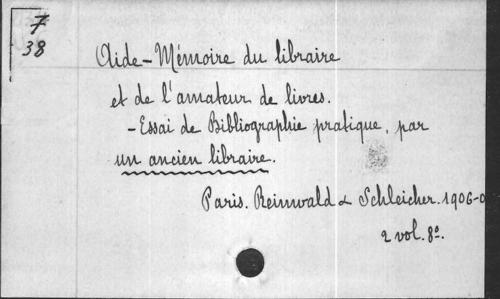 7
38
Aide-Mémoire du libraire
et de l'amateur de livres.
- Essai de Bibliographie pratique, par
un ancien libraire.
Paris. Reinwald & Schleicher. 1906-0
2 vol. 8º.